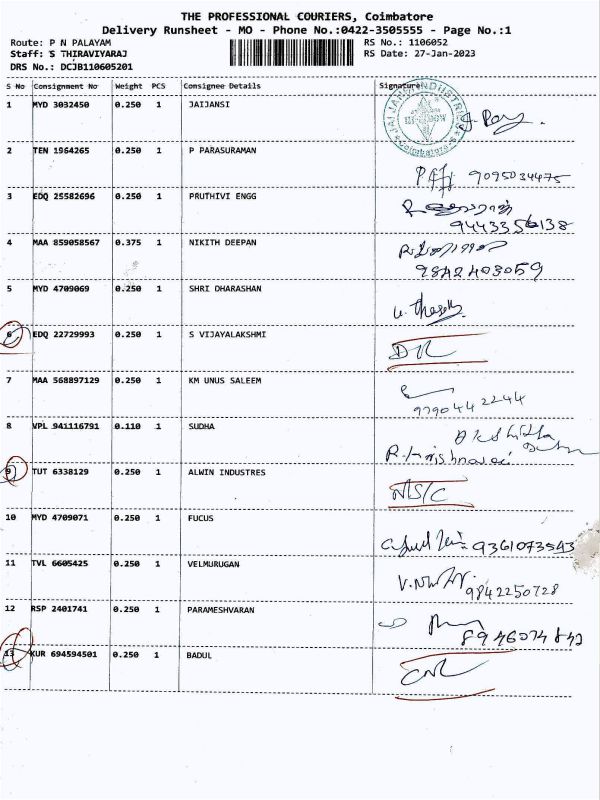 THE PROFESSIONAL COURIERS, Coimbatore
Delivery Runsheet - MO - Phone No.:0422-3505555 - Page No.:1
Route: P N PALAYAM
RS No.: 1106052
Staff: S THIRAVIYARAJ
RS Date: 27-Jan-2023
DRS No.: DCJB110605201
S No Consignment No Weight PCS Consignee Details Signature
1 MYD 3032450 0.250 1 JAIJANSI
2 TEN 1964265 0.250 1 P PARASURAMAN
9095034475
3 EDQ 25582696 0.250 1 PRUTHIVI ENGG
4 MAA 859058567 0.375 1 NIKITH DEEPAN
9842403059
5 MYD 4709069 0.250 1 SHRI DHARASHAN
6 EDQ 22729993 0.250 1 S VIJAYALAKSHMI
7 MAA 568897129 0.250 1 KM UNUS SALEEM
9790442244
8 VPL 941116791 0.110 1 SUDHA
9 TUT 6338129 0.250 1 ALWIN INDUSTRES
N/S/C
10 MYD 4709071 0.250 1 FUCUS
9361073543
11 TVL 6605425 0.250 1 VELMURUGAN
9842250728
12 RSP 2401741 0.250 1 PARAMESHVARAN
13 KUR 694594501 0.250 1 BADUL